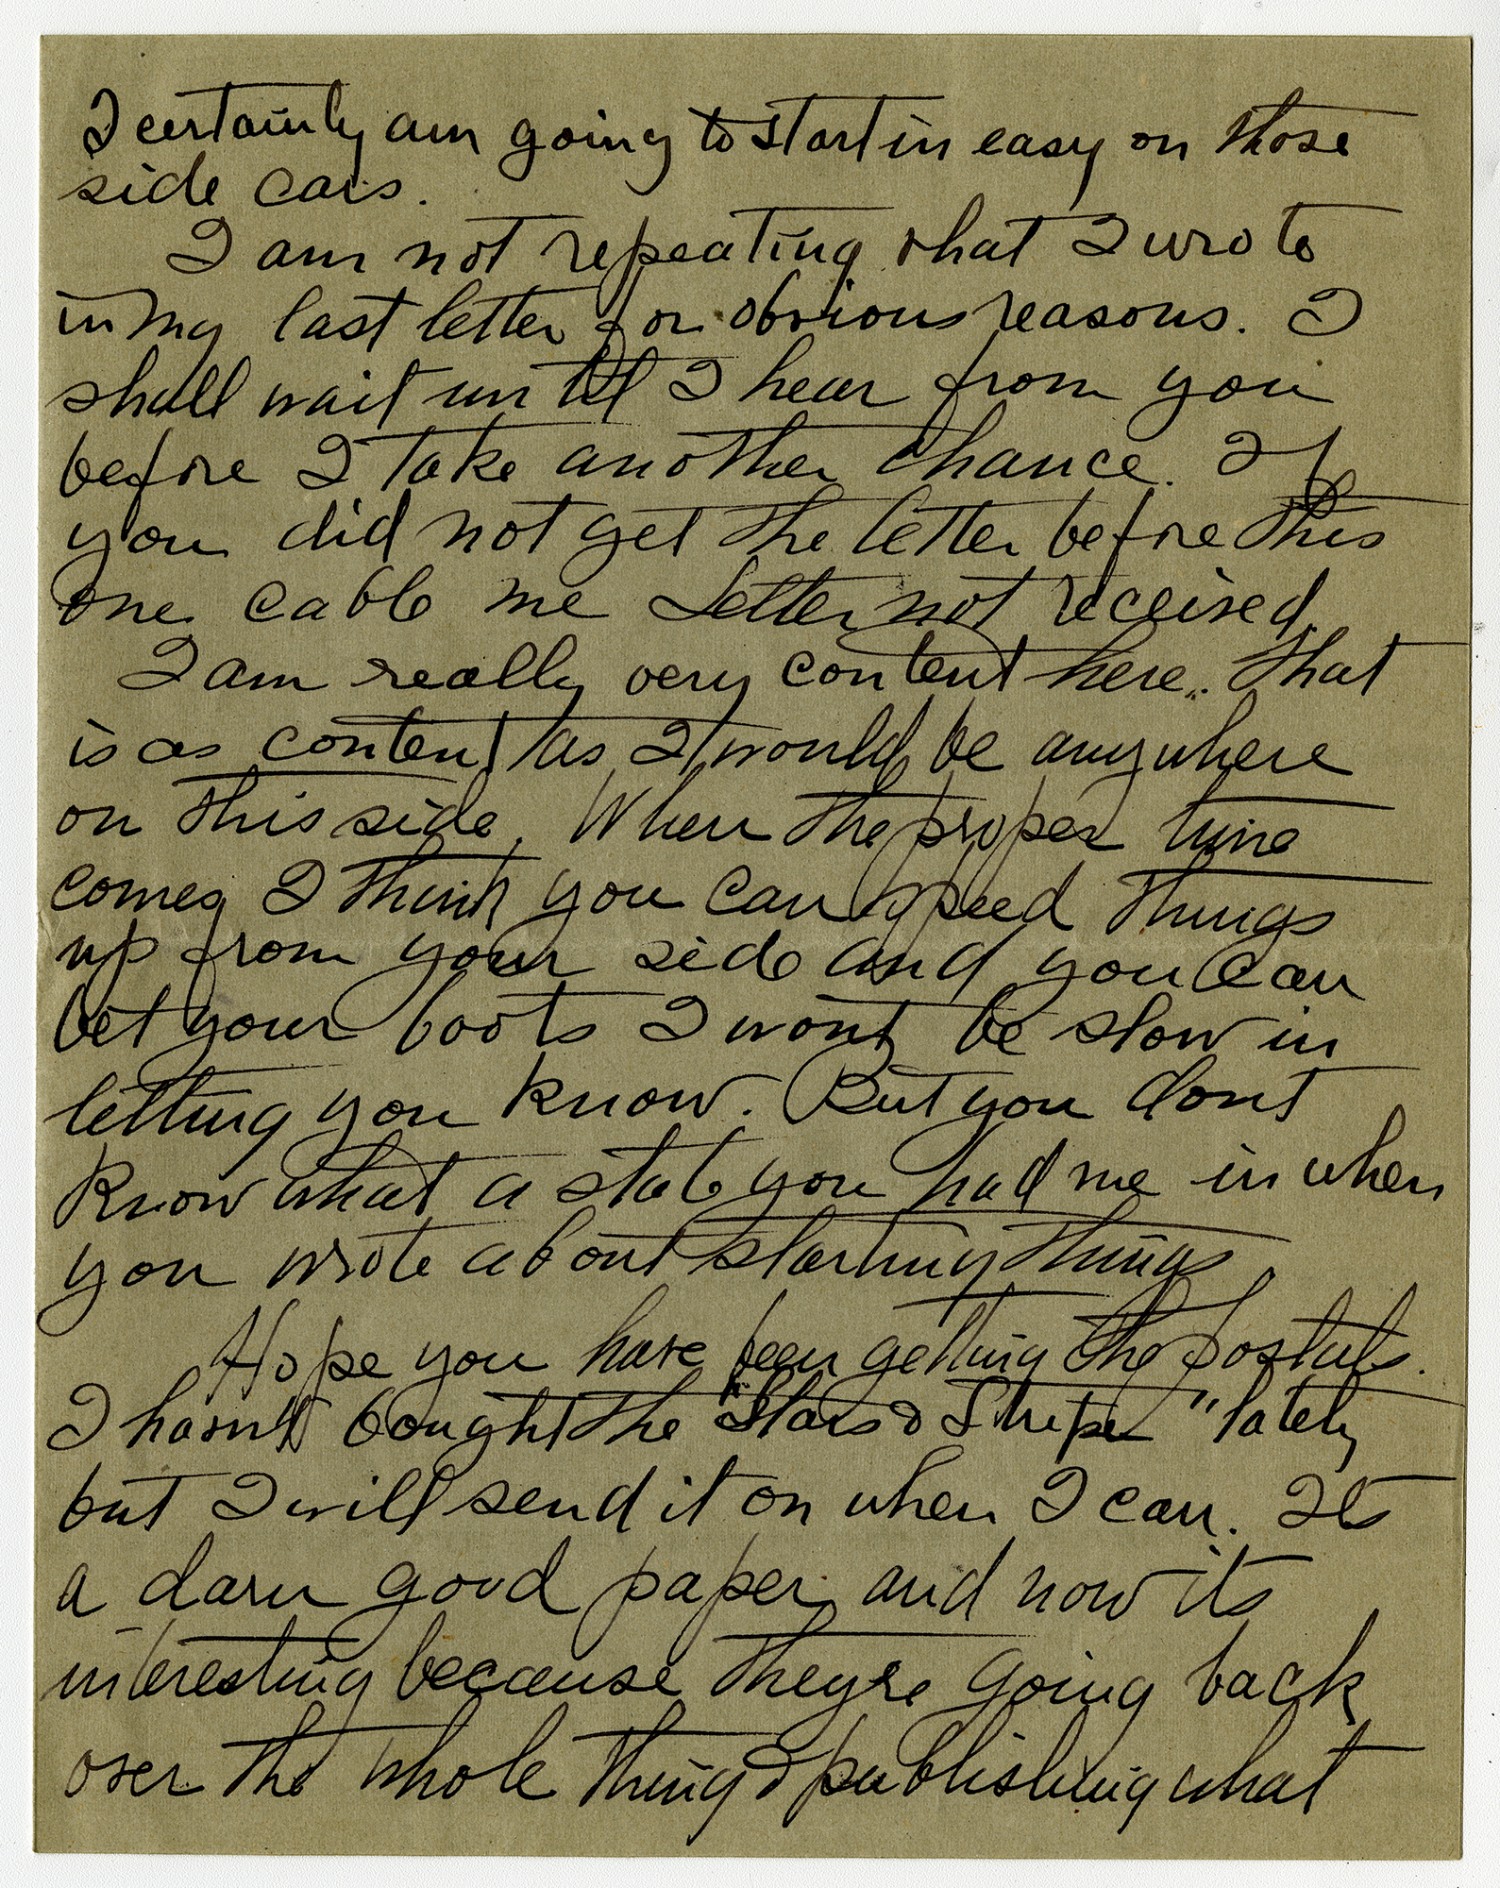 I certainly am going to start in easy on those
side cars.
I am not repeating what I wrote
in my last letter for obvious reasons. I
shall wait until I hear from you
before I take another chance. If
you did not get the letter before this
one cable me Letter not received.
I am really very content here. That
is as content as I would be anywhere
on this side. When the proper time
comes I think you can speed things
up from your side and you can
bet your boots I wont be slow in
letting you know. But you dont
know what a state you had me in when
you wrote about starting things.
Hope you have been getting the postals.
I hasn't bought the "Stars & Stripes" lately
but I will send it on when I can. Its
a darn good paper and now its
interesting because theyre going back
over the whole thing & publishing what